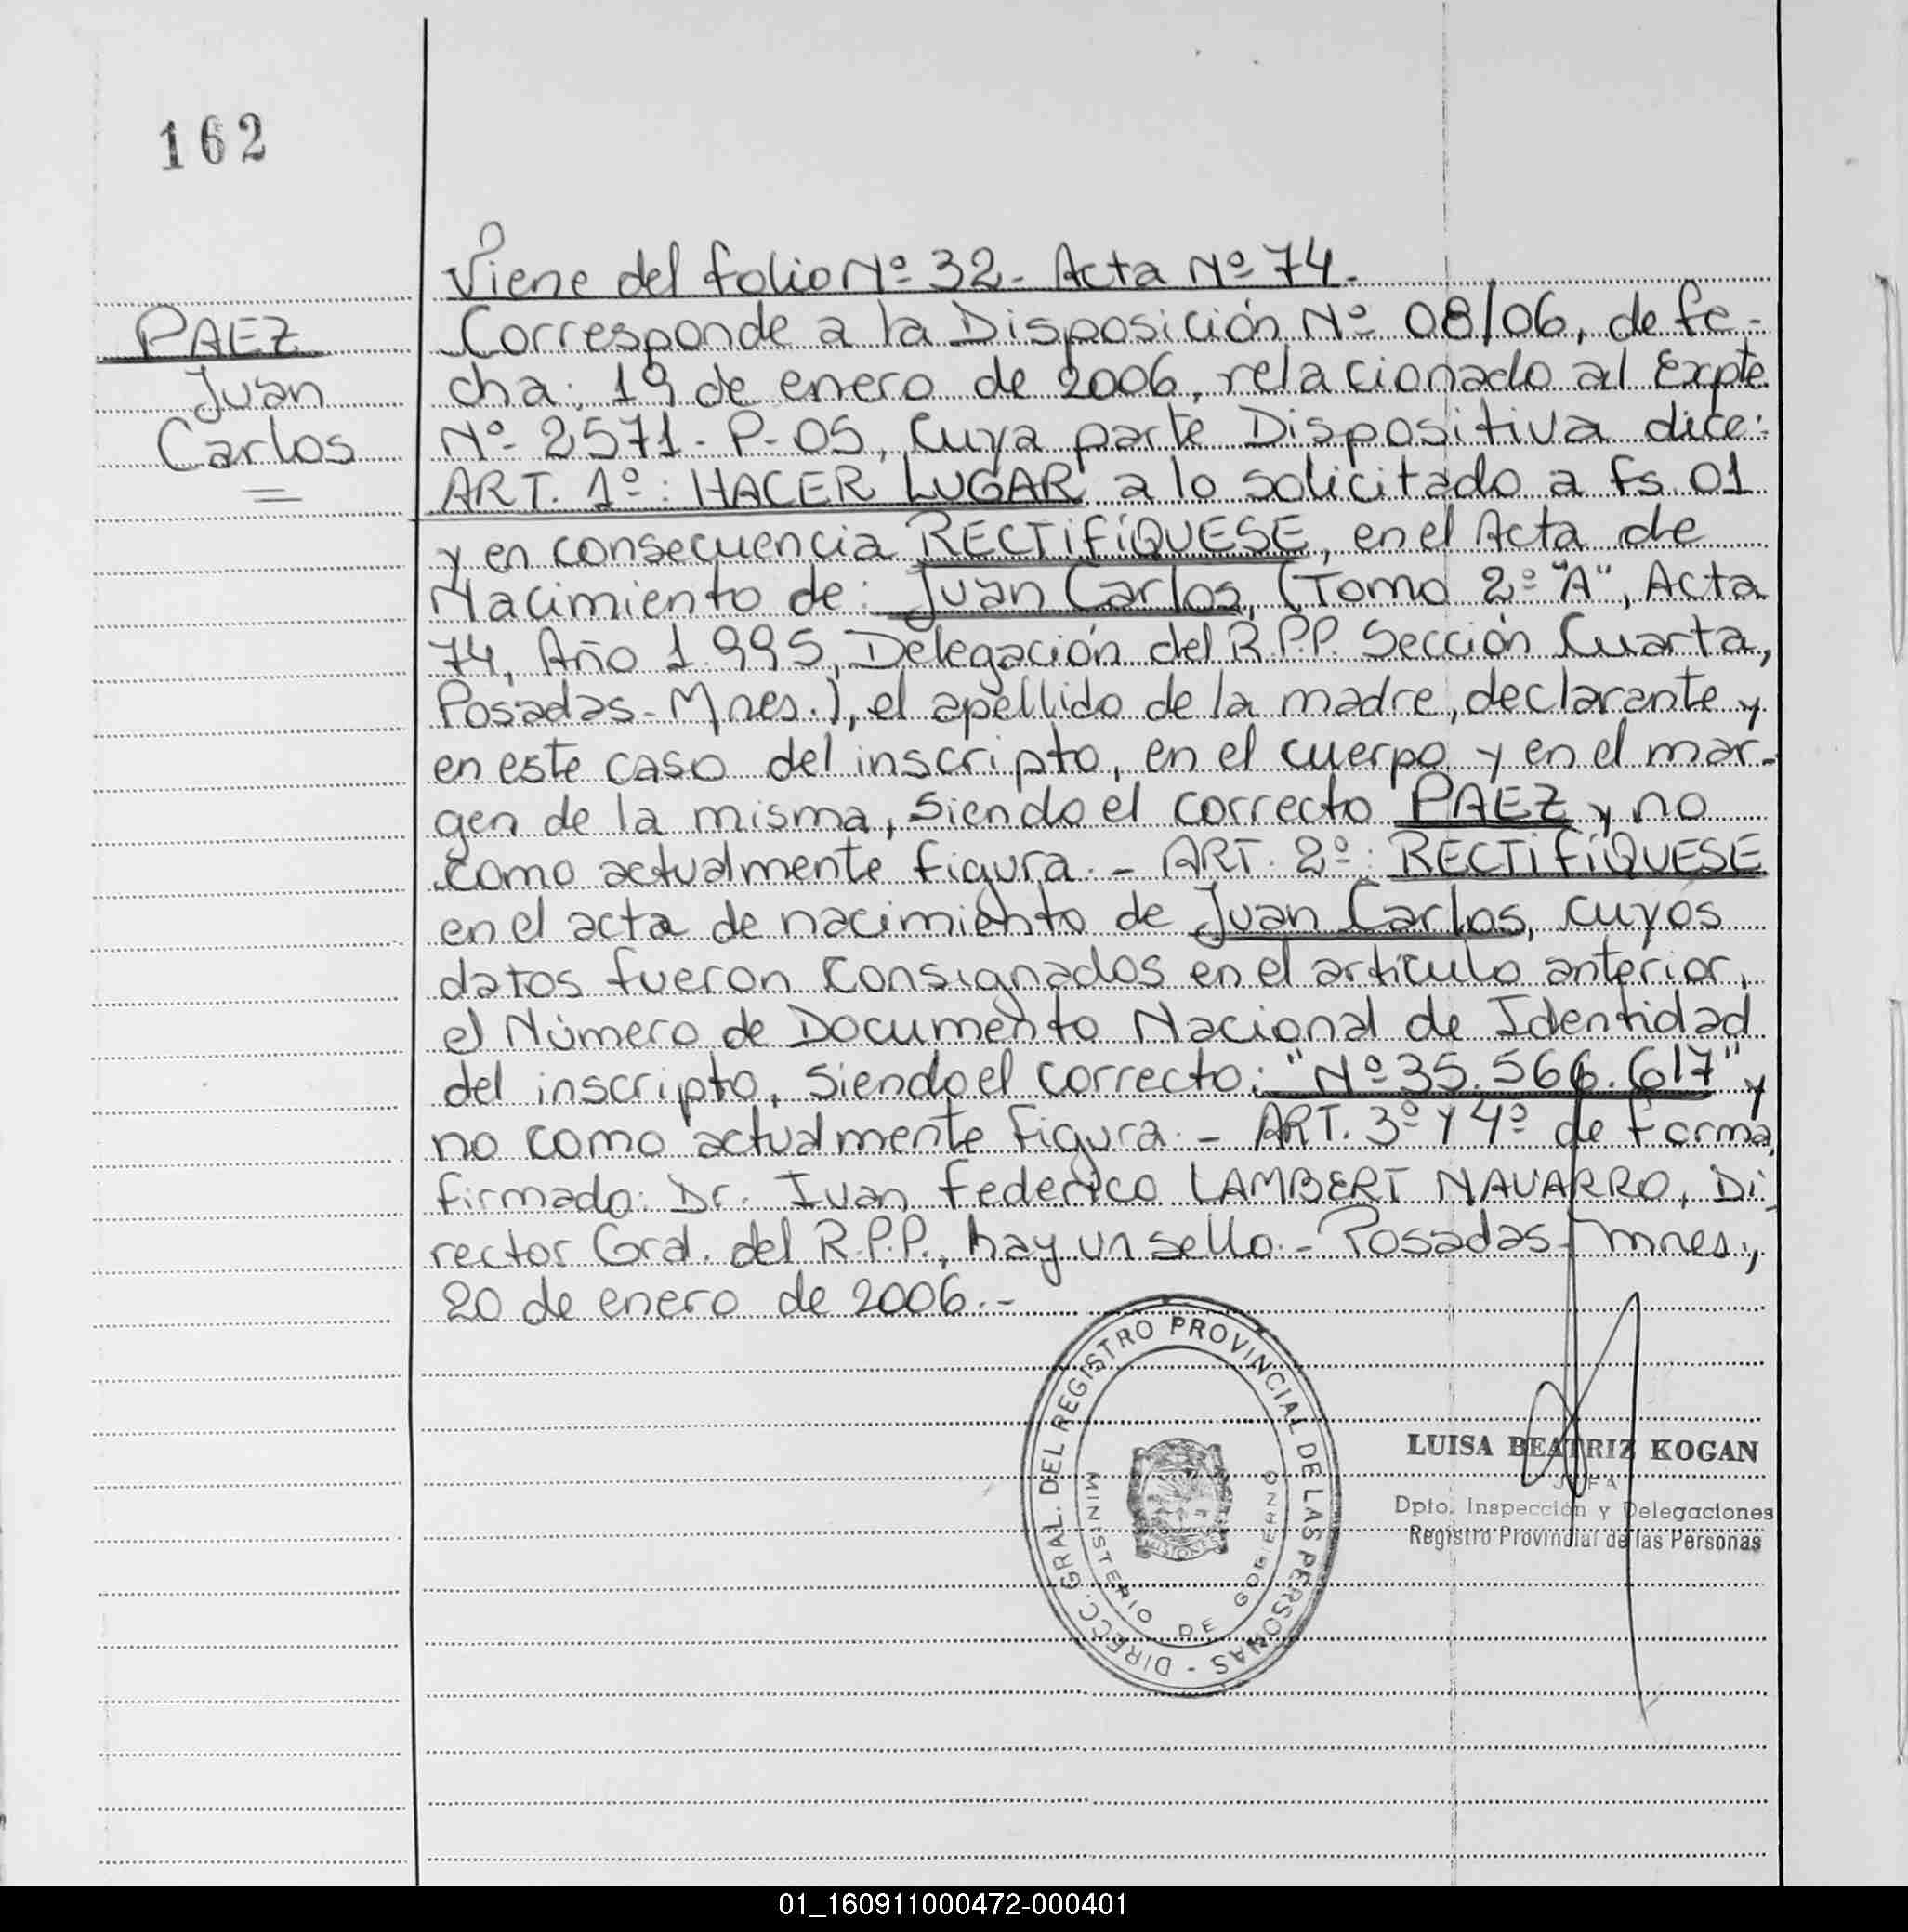 162
PAEZ
Juan
Carlos
Viene del folio Nº 32- Acta Nº 74.
Corresponde a la Disposición Nº 08/06, de fe-
cha: 19 de enero de 2006, relacionado al Expte
Nº 2571-P-05, Cuya parte Dispositiva dice:
ART. 1º: HACER LUGAR a lo solicitado a fs. 01
y en consecuencia RECTIFÍQUESE, en el Acta de
Nacimiento de: Juan Carlos, (Tomo 2º "A", Acta
74, Año 1.995, Delegación del R.P.P. Sección Cuarta,
Posadas-Mnes.), el apellido de la madre, declarante y
en este caso del inscripto, en el cuerpo y en el mar-
gen de la misma, siendo el correcto PAEZ y no
como actualmente figura.- ART. 2º: RECTIFÍQUESE
en el acta de nacimiento de Juan Carlos, cuyos
datos fueron consignados en el artículo anterior,
el Número de Documento Nacional de Identidad
del inscripto, siendo el correcto: "Nº 35.566.617" y
no como actualmente figura.- ART. 3º Y 4º de forma,
firmado: Dr. Ivan Federico LAMBERT NAVARRO, Di-
rector Gral. del R.P.P., hay un sello.- Posadas-Mnes.,
20 de enero de 2006.-
DIRECC. GRAL. DEL REGISTRO PROVINCIAL DE LAS PERSONAS -
MINISTERIO DE GOBIERNO
MISIONES
LUISA BEATRIZ KOGAN
JEFA
Dpto. Inspección y Delegaciones
Registro Provincial de las Personas
01_160911000472-000401